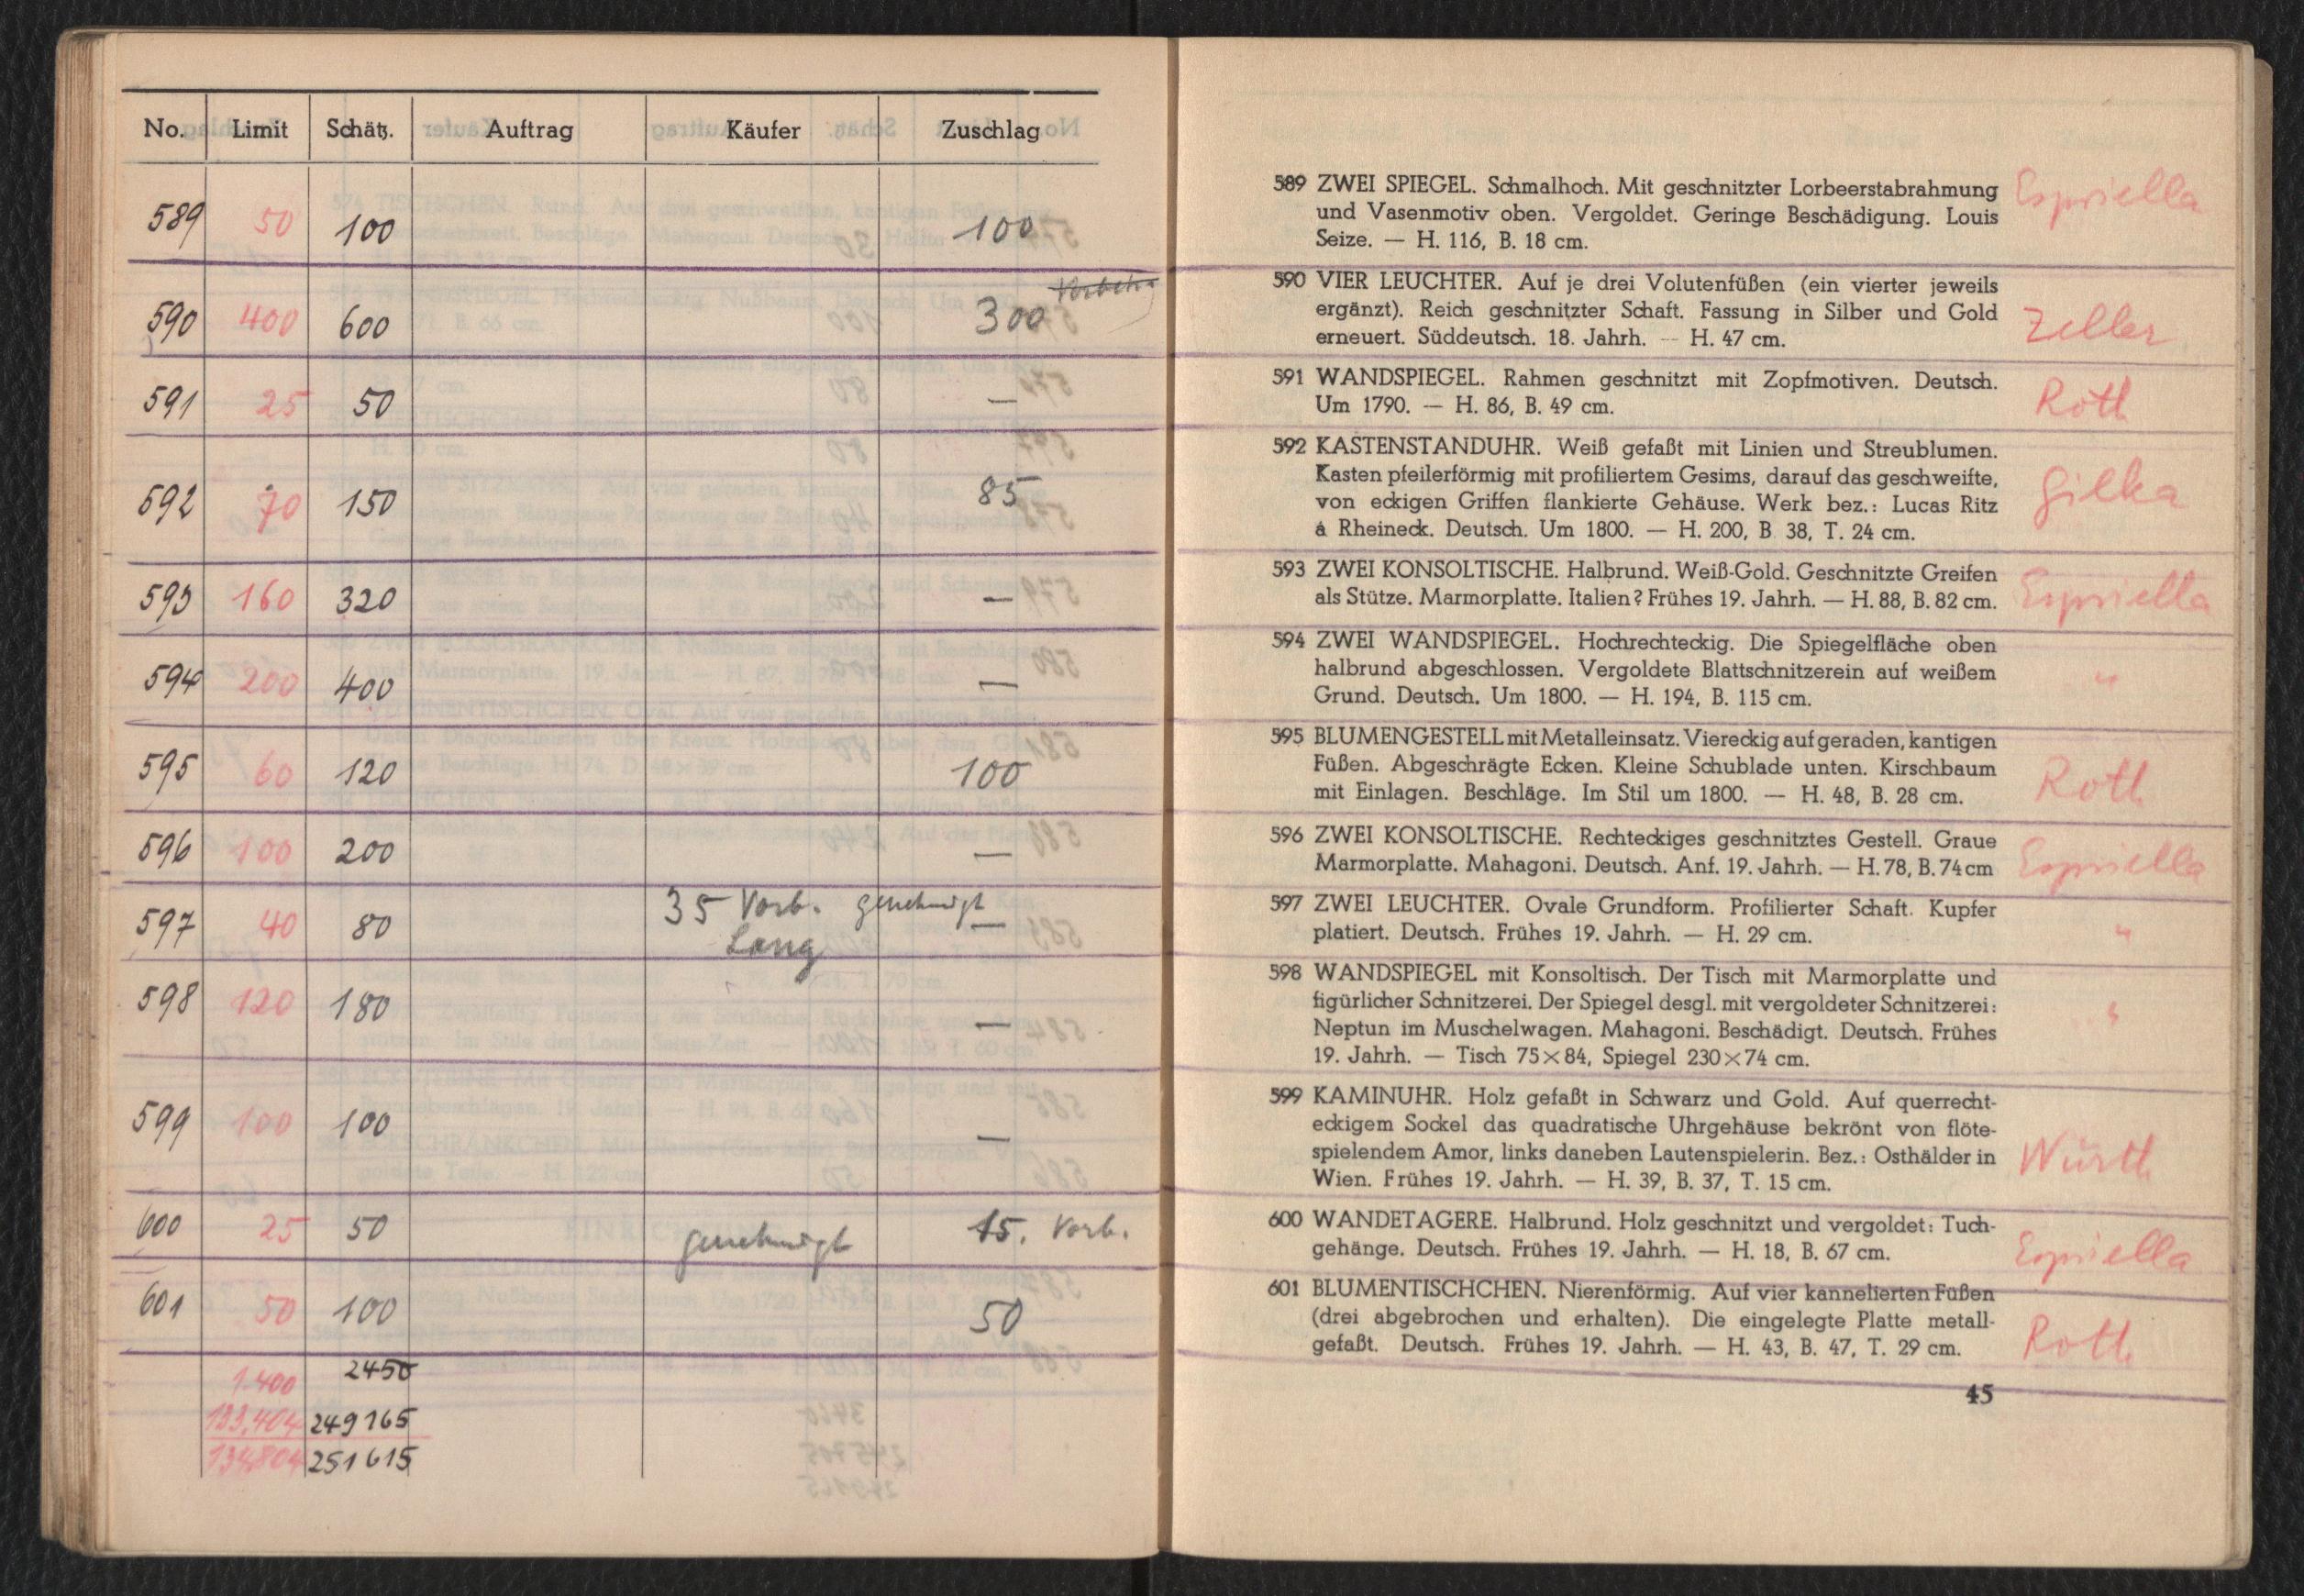 No. Limit Schätz. Auftrag Käufer Zuschlag
589 50 100 100
590 400 600 300 Vorbeh.
591 25 50 —
592 70 150 85
593 160 320 —
594 200 400 —
595 60 120 100
596 100 200 —
597 40 80 35 Vorb. genehmigt —
Lang
598 120 180 —
599 100 100 —
600 25 50 genehmigt 15. Vorb.
601 50 100 50
1.400 2450
133.404 249165
134804 251615
589 ZWEI SPIEGEL. Schmalhoch. Mit geschnitzter Lorbeerstabrahmung Espriella
und Vasenmotiv oben. Vergoldet. Geringe Beschädigung. Louis
Seize. — H. 116, B. 18 cm.
590 VIER LEUCHTER. Auf je drei Volutenfüßen (ein vierter jeweils
ergänzt). Reich geschnitzter Schaft. Fassung in Silber und Gold Zeller
erneuert. Süddeutsch. 18. Jahrh. — H. 47 cm.
591 WANDSPIEGEL. Rahmen geschnitzt mit Zopfmotiven. Deutsch. Roth
Um 1790. — H. 86, B. 49 cm.
592 KASTENSTANDUHR. Weiß gefaßt mit Linien und Streublumen.
Kasten pfeilerförmig mit profiliertem Gesims, darauf das geschweifte, Gilka
von eckigen Griffen flankierte Gehäuse. Werk bez.: Lucas Ritz
á Rheineck. Deutsch. Um 1800. — H. 200, B 38, T. 24 cm.
593 ZWEI KONSOLTISCHE. Halbrund. Weiß-Gold. Geschnitzte Greifen Espriella
als Stütze. Marmorplatte. Italien? Frühes 19. Jahrh. — H. 88, B. 82 cm.
594 ZWEI WANDSPIEGEL. Hochrechteckig. Die Spiegelfläche oben
halbrund abgeschlossen. Vergoldete Blattschnitzerein auf weißem "
Grund. Deutsch. Um 1800. — H. 194, B. 115 cm.
595 BLUMENGESTELL mit Metalleinsatz. Viereckig auf geraden, kantigen
Füßen. Abgeschrägte Ecken. Kleine Schublade unten. Kirschbaum Roth
mit Einlagen. Beschläge. Im Stil um 1800. — H. 48, B. 28 cm.
596 ZWEI KONSOLTISCHE. Rechteckiges geschnitztes Gestell. Graue Espriella
Marmorplatte. Mahagoni. Deutsch. Anf. 19. Jahrh. — H. 78, B. 74 cm
597 ZWEI LEUCHTER. Ovale Grundform. Profilierter Schaft. Kupfer "
platiert. Deutsch. Frühes 19. Jahrh. — H. 29 cm.
598 WANDSPIEGEL mit Konsoltisch. Der Tisch mit Marmorplatte und
figürlicher Schnitzerei. Der Spiegel desgl. mit vergoldeter Schnitzerei: "
Neptun im Muschelwagen. Mahagoni. Beschädigt. Deutsch. Frühes
19. Jahrh. — Tisch 75×84, Spiegel 230×74 cm.
599 KAMINUHR. Holz gefaßt in Schwarz und Gold. Auf querrecht-
eckigem Sockel das quadratische Uhrgehäuse bekrönt von flöte-
spielendem Amor, links daneben Lautenspielerin. Bez.: Osthälder in Würth
Wien. Frühes 19. Jahrh. — H. 39, B. 37, T. 15 cm.
600 WANDETAGERE. Halbrund. Holz geschnitzt und vergoldet: Tuch-
gehänge. Deutsch. Frühes 19. Jahrh. — H. 18, B. 67 cm. Espriella
601 BLUMENTISCHCHEN. Nierenförmig. Auf vier kannelierten Füßen
(drei abgebrochen und erhalten). Die eingelegte Platte metall- Roth
gefaßt. Deutsch. Frühes 19. Jahrh. — H. 43, B. 47, T. 29 cm.
45